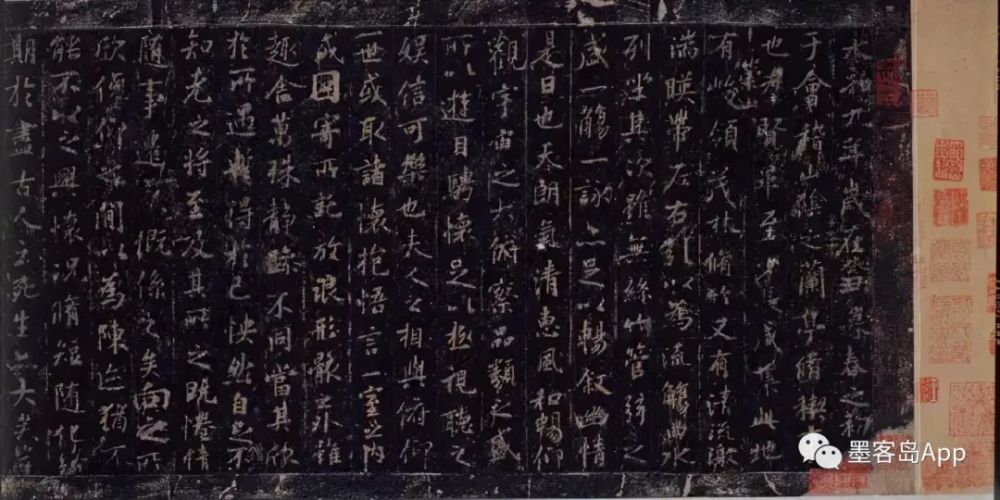 永和九年歲在癸丑暮春之初
于會稽山陰之蘭亭脩稧
也羣賢畢至少長咸集此地
有崇山峻領茂林脩竹又有清流激
湍暎帶左右引以為流觴曲水
列坐其次雖無絲竹管弦之
盛一觴一詠亦足以暢敘幽情
是日也天朗氣清惠風和暢仰
觀宇宙之大俯察品類之盛
所以遊目騁懷足以極視聽之
娛信可樂也夫人之相與俯仰
一世或取諸懷抱悟言一室之內
或因寄所託放浪形骸之外雖
趣舍萬殊靜躁不同當其欣
於所遇暫得於己怏然自足不
知老之將至及其所之既惓情
隨事遷感慨係之矣向之所
欣俛仰之間以為陳迹猶不
能不以之興懷況脩短隨化終
期於盡古人云死生亦大矣豈
墨客岛App